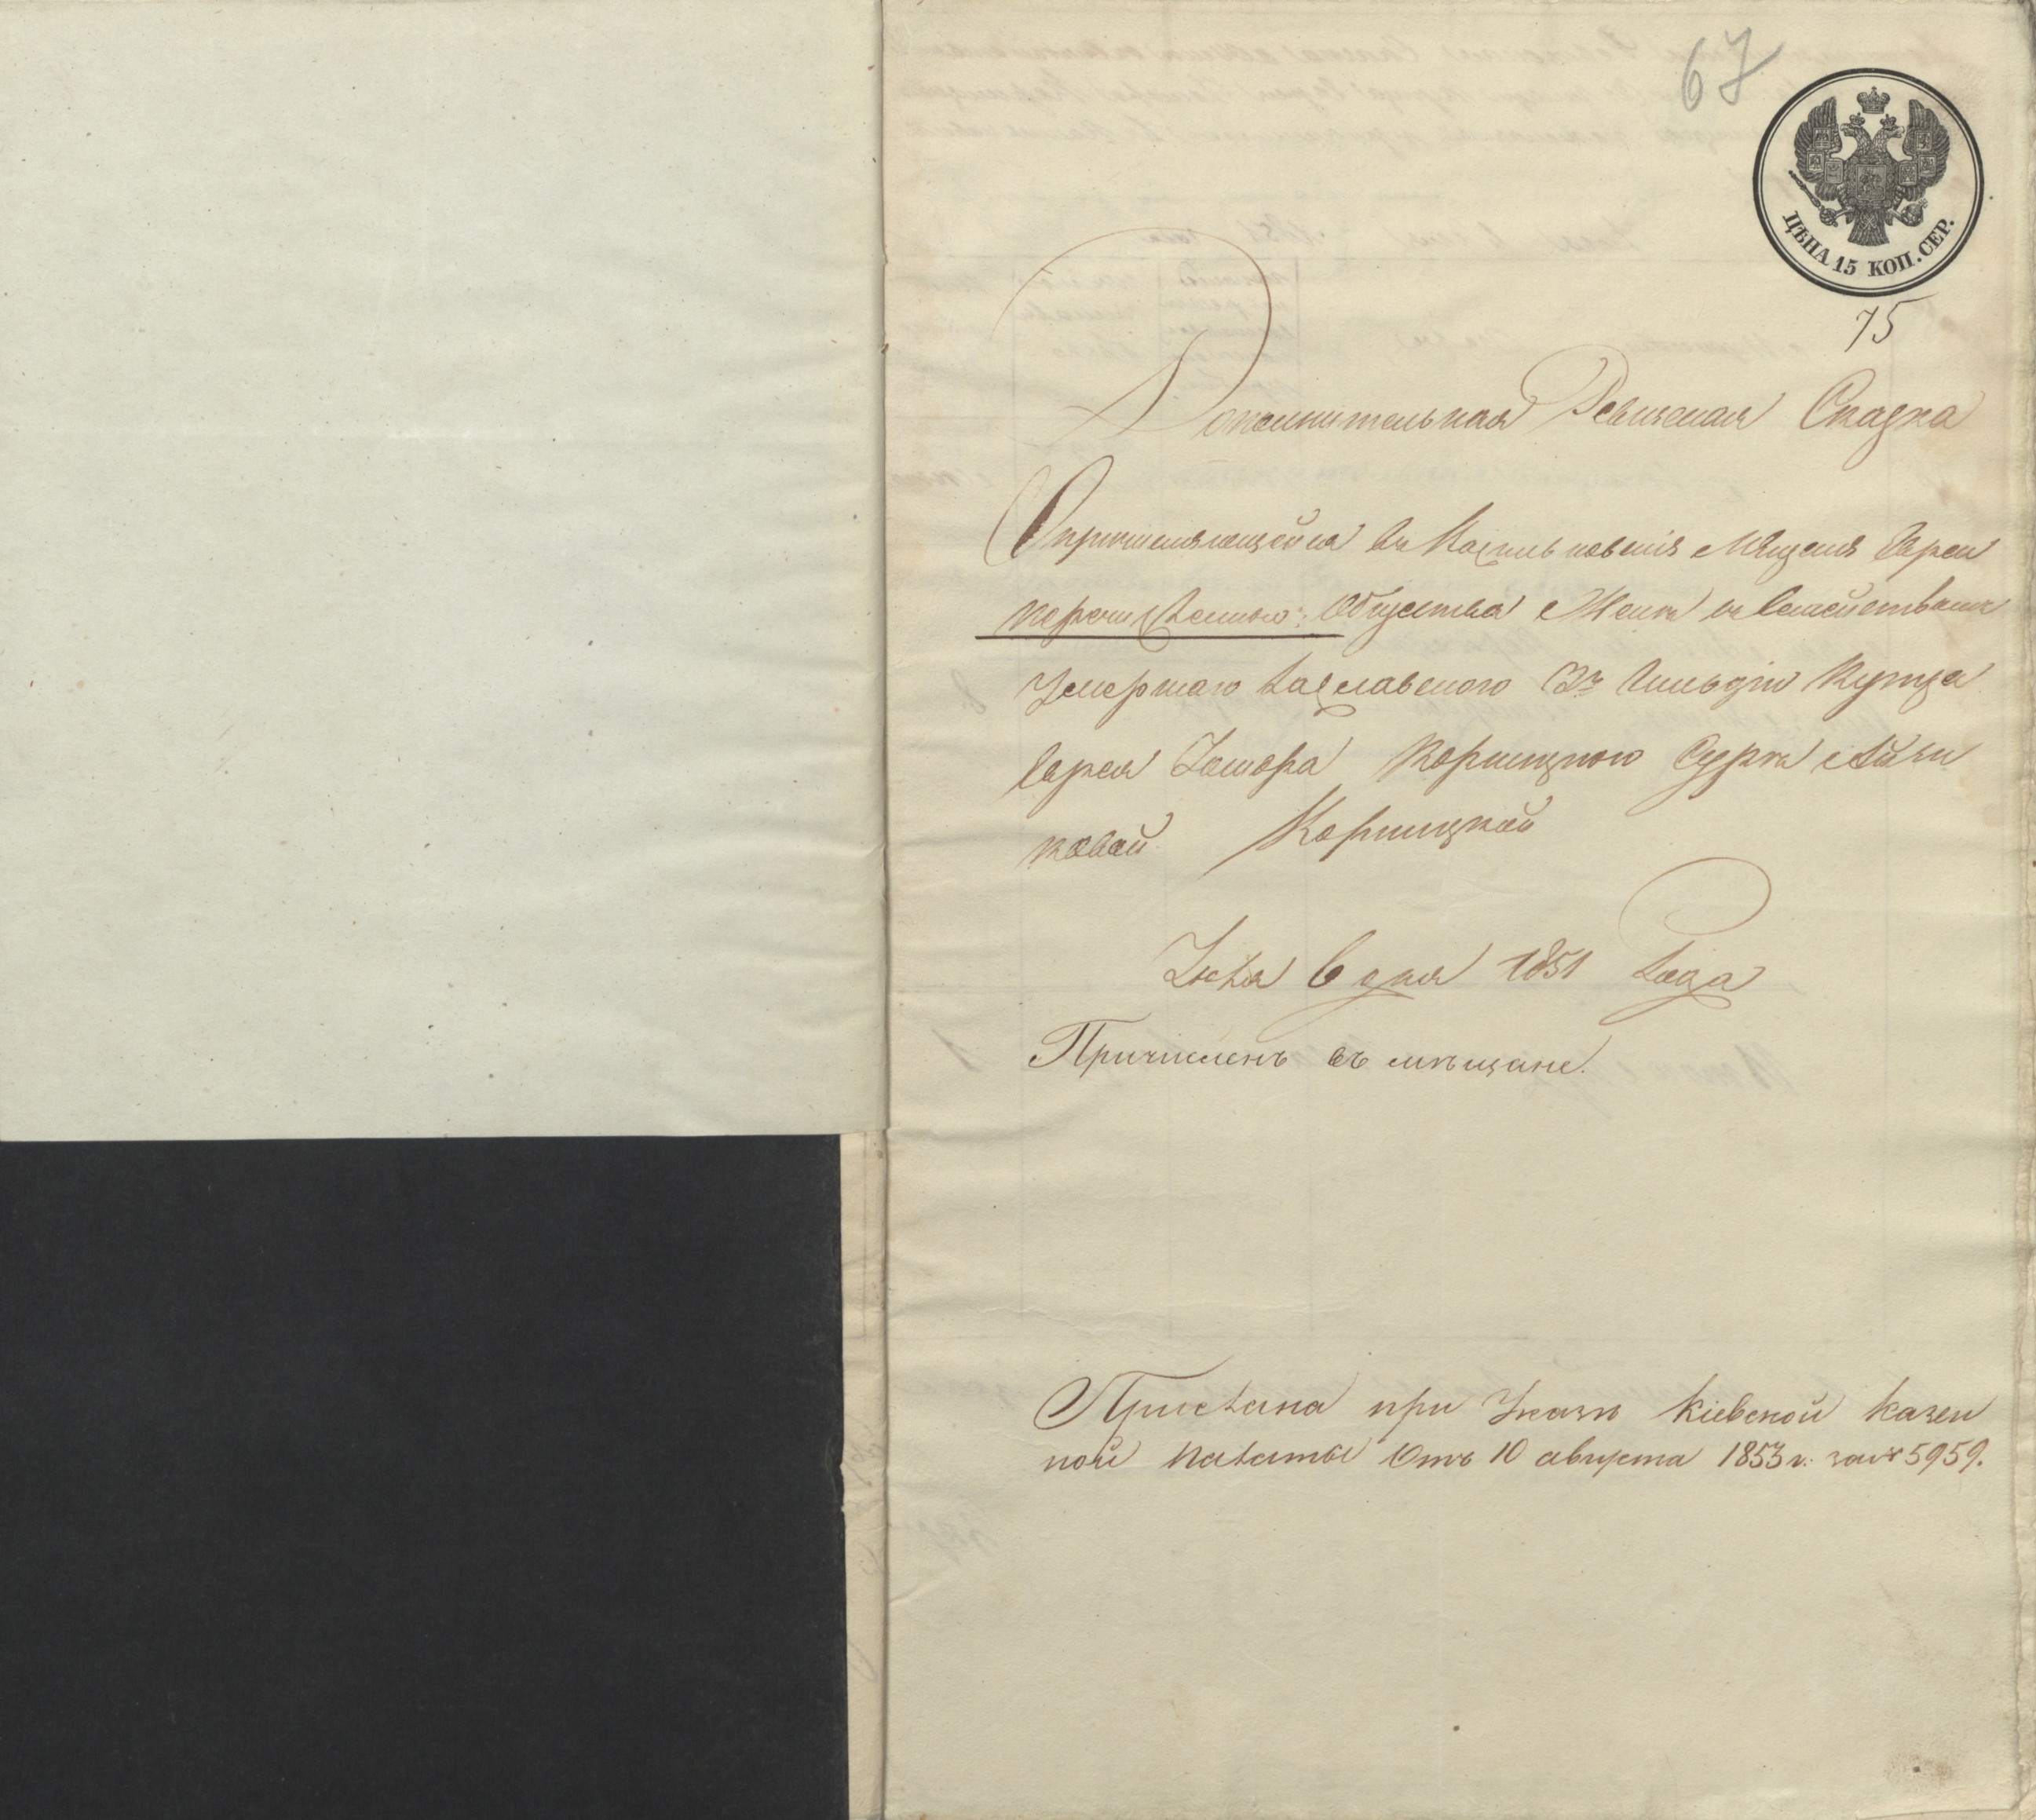 67
ЦѢНА 15 КОП. СЕР.
75
Дополнительная Ревизская Сказка
О причисляющейся въ Васильковскія Мѣщане Евреи
Общества Жена съ Семействомъ
Умершаго Заславского 3й Гильдіи Купца
Еврея Корницкого Сурка Айзи
ковой Корницкой
Іюля 6 дня 1851 Года
Причисленъ въ мѣщане.
Прислана при Указѣ Кіевской Казен
ной Палаты Отъ 10 августа 1853 г. за № 5959.